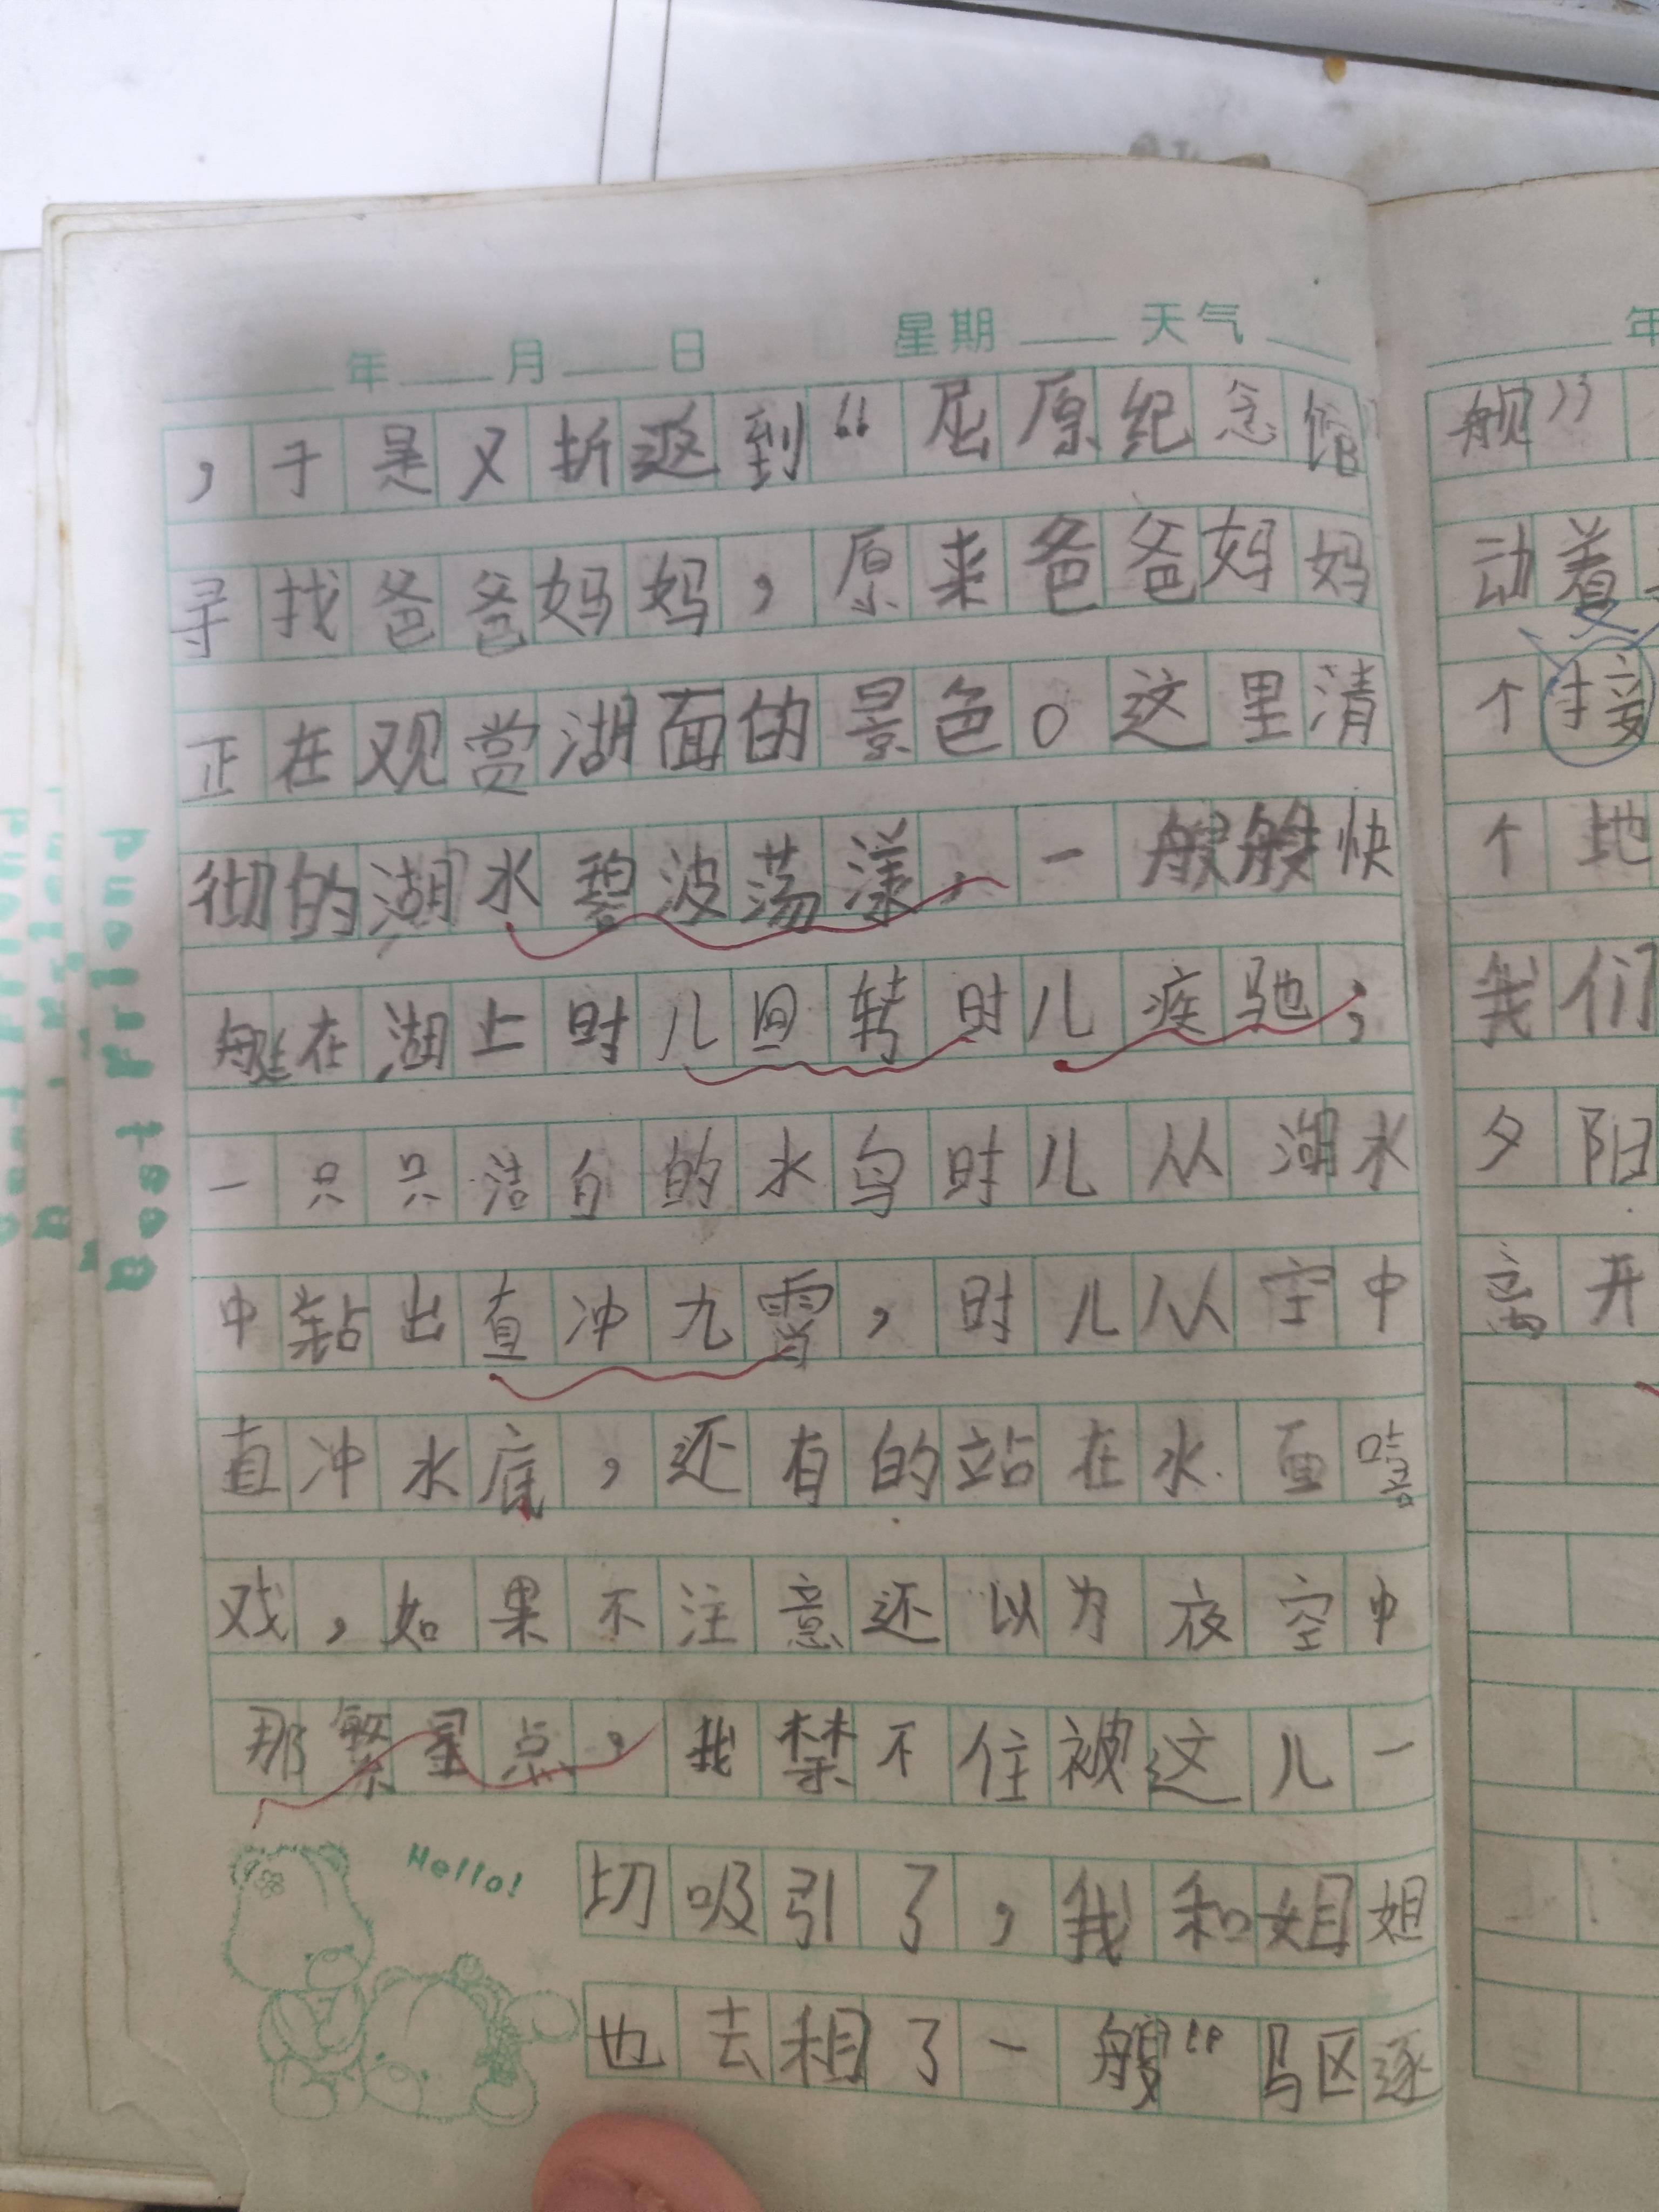 年 月 日 星期 天气
，于是又折返到“屈原纪念馆”
寻找爸爸妈妈，原来爸爸妈妈
正在观赏湖面的景色。这里清
彻的湖水碧波荡漾，一艘艘快
艇在湖上时儿回转时儿疾驰；
一只只洁白的水鸟时儿从湖水
中钻出直冲九霄，时儿从空中
直冲水底，还有的站在水面嘻
戏，如果不注意还以为夜空中
那繁星点，我禁不住被这儿一
切吸引了，我和姐姐
也去租了一艘“驱逐
Hello!
年
舰”
动着
个接
个地
我们
夕阳
离开